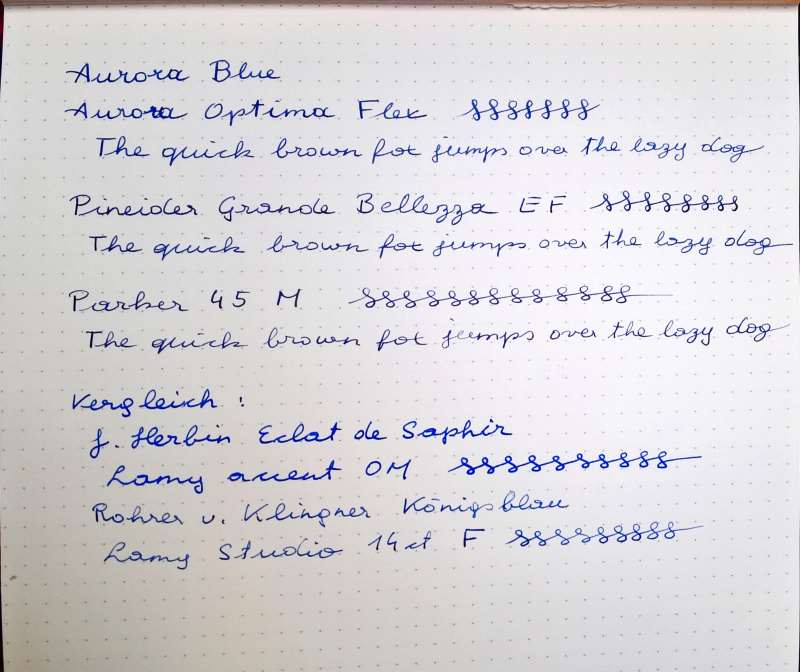 Aurora Blue
Aurora Optima Flex
The quick brown fox jumps over the lazy dog
Pineider Grande Bellezza EF
The quick brown fox jumps over the lazy dog
Parker 45 M
The quick brown fox jumps over the lazy dog
Vergleich :
J. Herbin Eclat de Saphir
Lamy accent OM
Rohrer u. Klingner Königsblau
Lamy Studio 14ct F